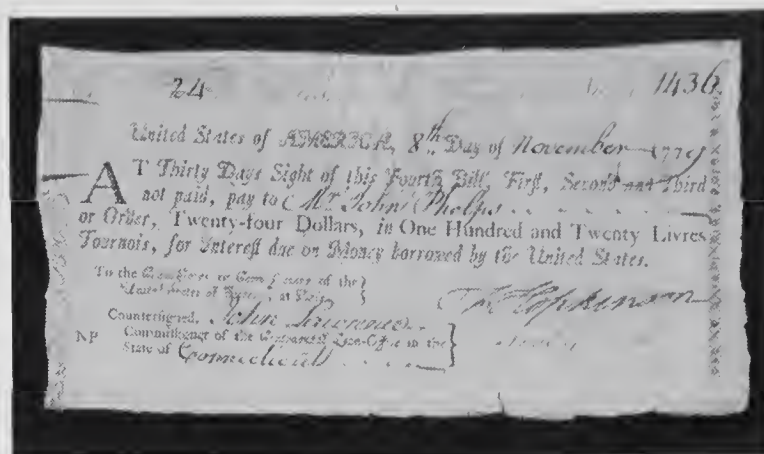 24 1436
United States of AMERICA, 8th Day of November 1779
AT Thirty Days Sight of this Fourth Bill, First, Second and Third
not paid, pay to Mr. John Phelps
or Order, Twenty-four Dollars, in One Hundred and Twenty Livres
Tournois, for Interest due on Money borrowed by the United States.
To the Commissioner or Commissioners of the
United States of America, at Paris.
F Hopkinson
Countersigned, John Lawrence
NP Commissioner of the Continental Loan-Office in the
State of Connecticut